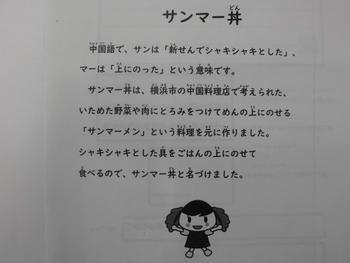 サンマー丼
中国語で、サンは「新せんでシャキシャキとした」、
マーは「上にのった」という意味です。
サンマー丼は、横浜市の中国料理店で考えられた、
いためた野菜や肉にとろみをつけてめんの上にのせる
「サンマーメン」という料理を元に作りました。
シャキシャキとした具をごはんの上にのせて
食べるので、サンマー丼と名づけました。